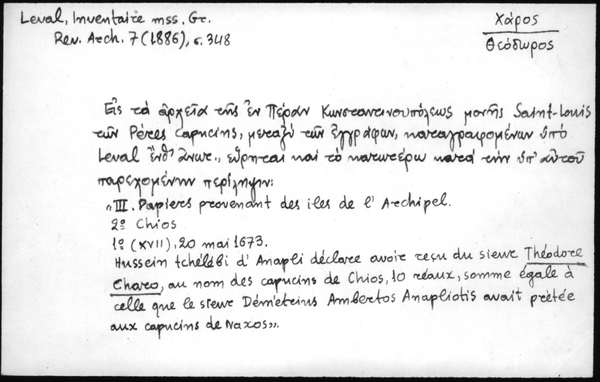 Leval, Inventaire mss. Gr.
Rev. Arch. 7 (1886), σ. 348
Χάρος
Θεόδωρος
Εἰς τὰ ἀρχεῖα τῆς ἐν Πέραν Κωνσταντινουπόλεως μονῆς Saint-Louis
τῶν Péres Capucins, μεταξὺ τῶν ἐγγράφων, καταγραφομένων ὑπὸ
Leval ἔνθ' ἄνωτ., εὕρηται καὶ τὸ κατωτέρω κατὰ τὴν ὑπ' αὐτοῦ
παρεχομένην περίληψιν:
"III. Papiers provenant des iles de l' Archipel.
2º Chios
1º (XVII), 20 mai 1673.
Hussein tchélébi d' Anapli déclare avoir reçu du sieur Théodore
Charo, au nom des capucins de Chios, 10 réaux, somme égale à
celle que le sieur Démétrius Ambertos Anapliotis avait prêtée
aux capucins de Naxos".